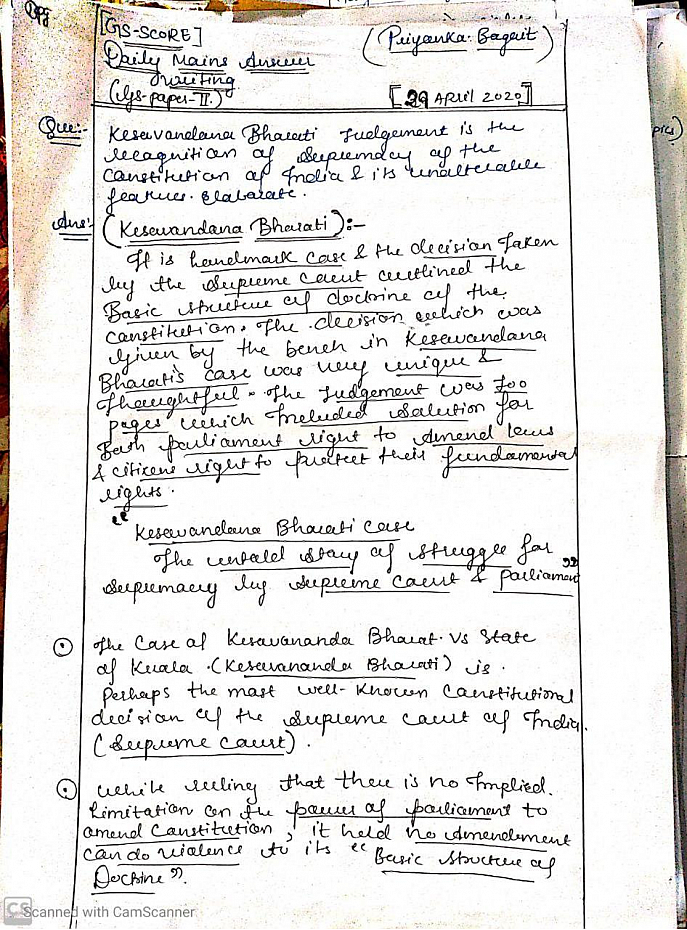 [GS-SCORE]
(Priyanka. Bagait)
Daily Mains Answer
writing
(Gs-paper-II.)
[29 APril 2020]
Que:- Kesavandana Bharati Judgement is the
recognition of supremacy of the
constitution of India & its unalterable
features. Elaborate.
Ans:- (Kesavandana Bharati):-
It is handmark case & the decision Taken
by the supreme court outlined the
Basic structure of doctrine of the
constitution. The decision which was
Given by the bench in Kesavandana
Bharati's case was very unique &
Thoughtful. The Judgement was 700
pages which Included solution for
Both parliament right to Amend laws
& citizens right to protect their fundamental
rights.
"Kesavandana Bharati case
The untold story of struggle for
supremacy by supreme court & Parliament"
The case of Kesavananda Bharat. vs State
of Kerala. (Kesavananda Bharati) is.
Perhaps the most well-known constitutional
decision of the supreme court of India.
(Supreme court).
while ruling that there is no Implied.
limitation on the power of parliament to
amend constitution, it held no Amendment
can do violence to its "Basic structure of
Doctrine".
pics)
CS Scanned with CamScanner